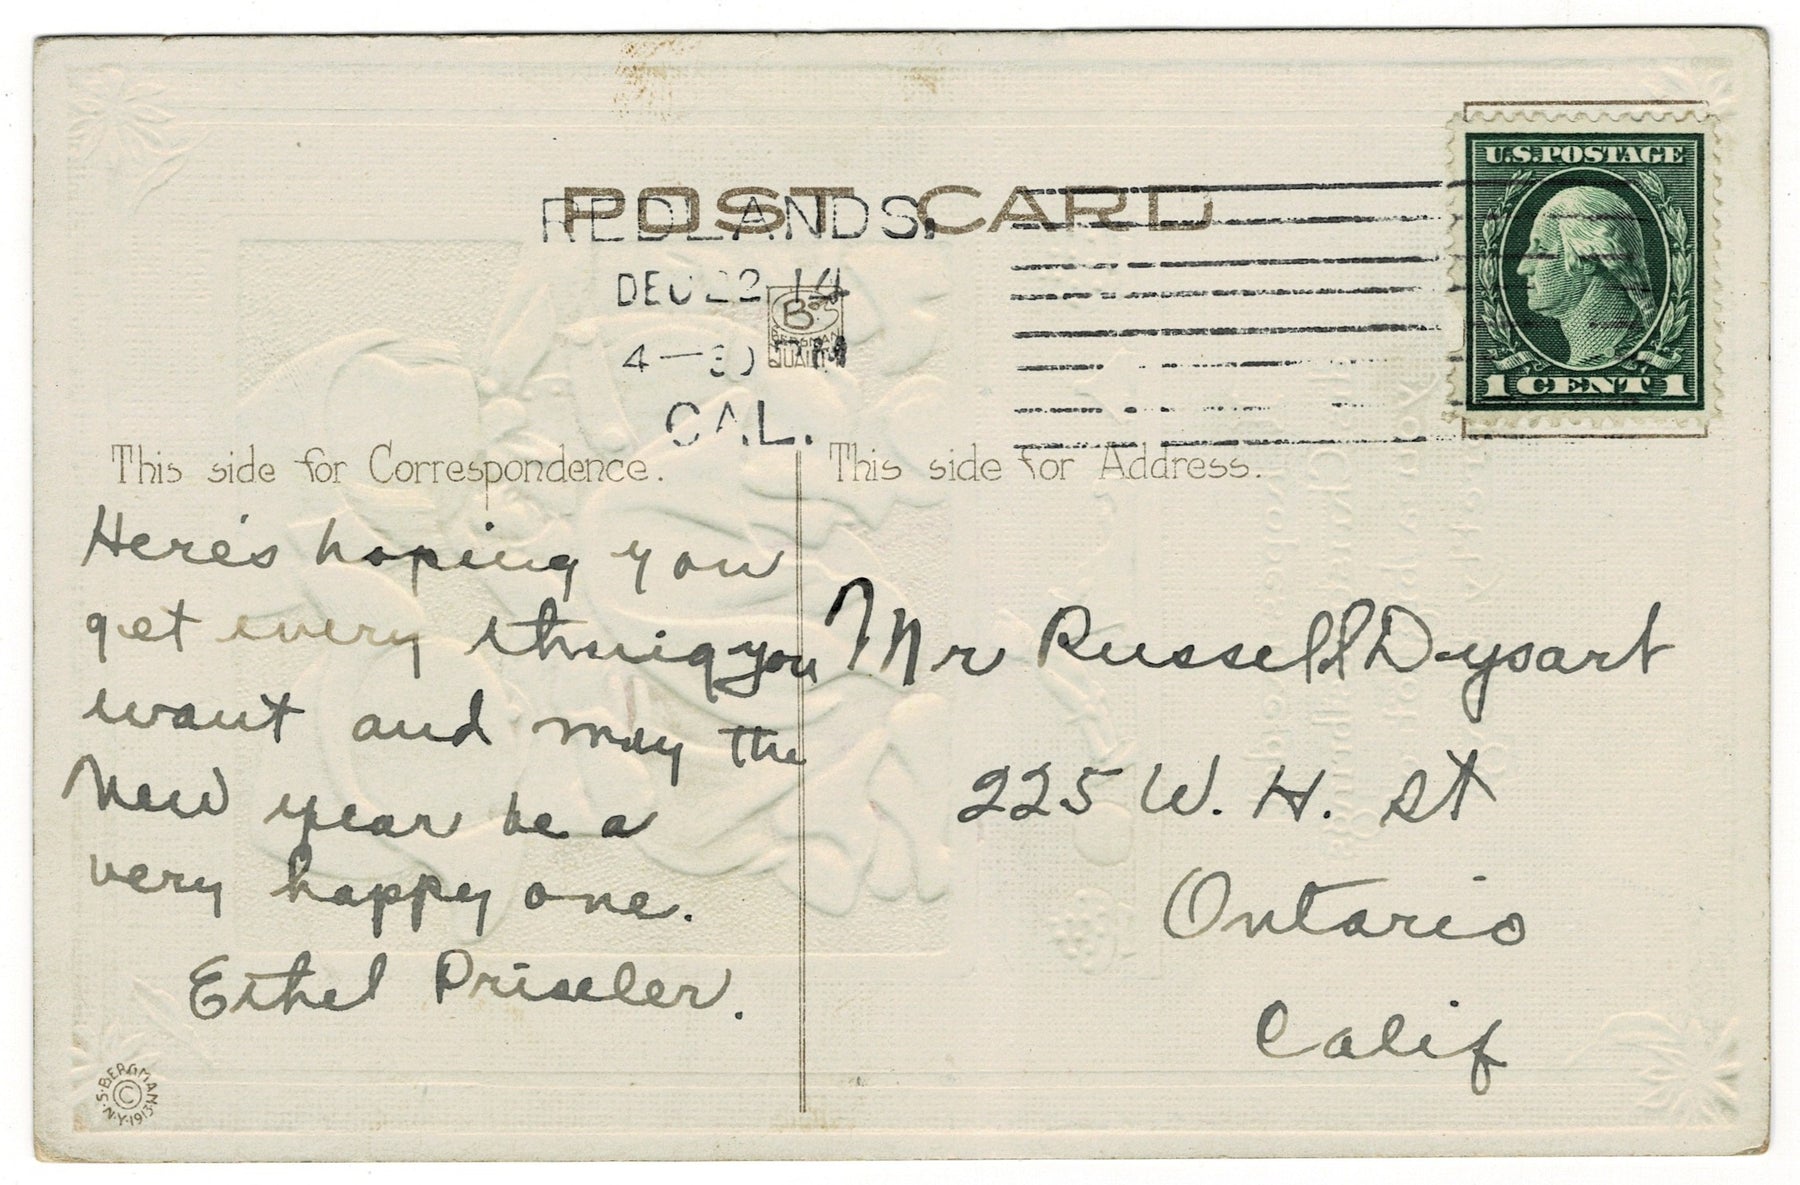 POST CARD
REDLANDS.
DEC 22 14
4—30 PM
CAL.
B
BERGMAN
QUALITY
U.S. POSTAGE
1 CENT 1
This side for Correspondence.
This side for Address.
Here's hoping you
get every thing you
want and may the
New year be a
very happy one.
Ethel Priseler.
Mr Russell Dysart
225 W. H. St
Ontario
Calif
S. BERGMAN N.Y. 1913
©